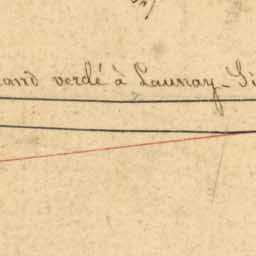 rand verdé à Launay-Si